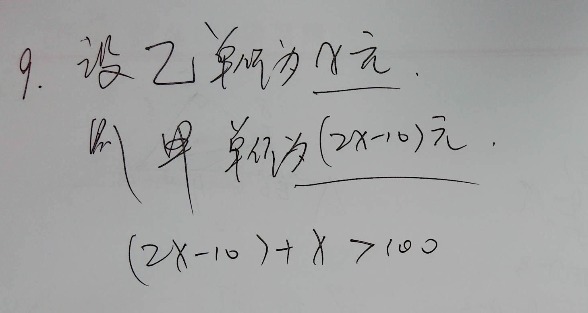 9. 设乙单价为x元.
则甲单价为(2x-10)元.
(2x-10)+x>100